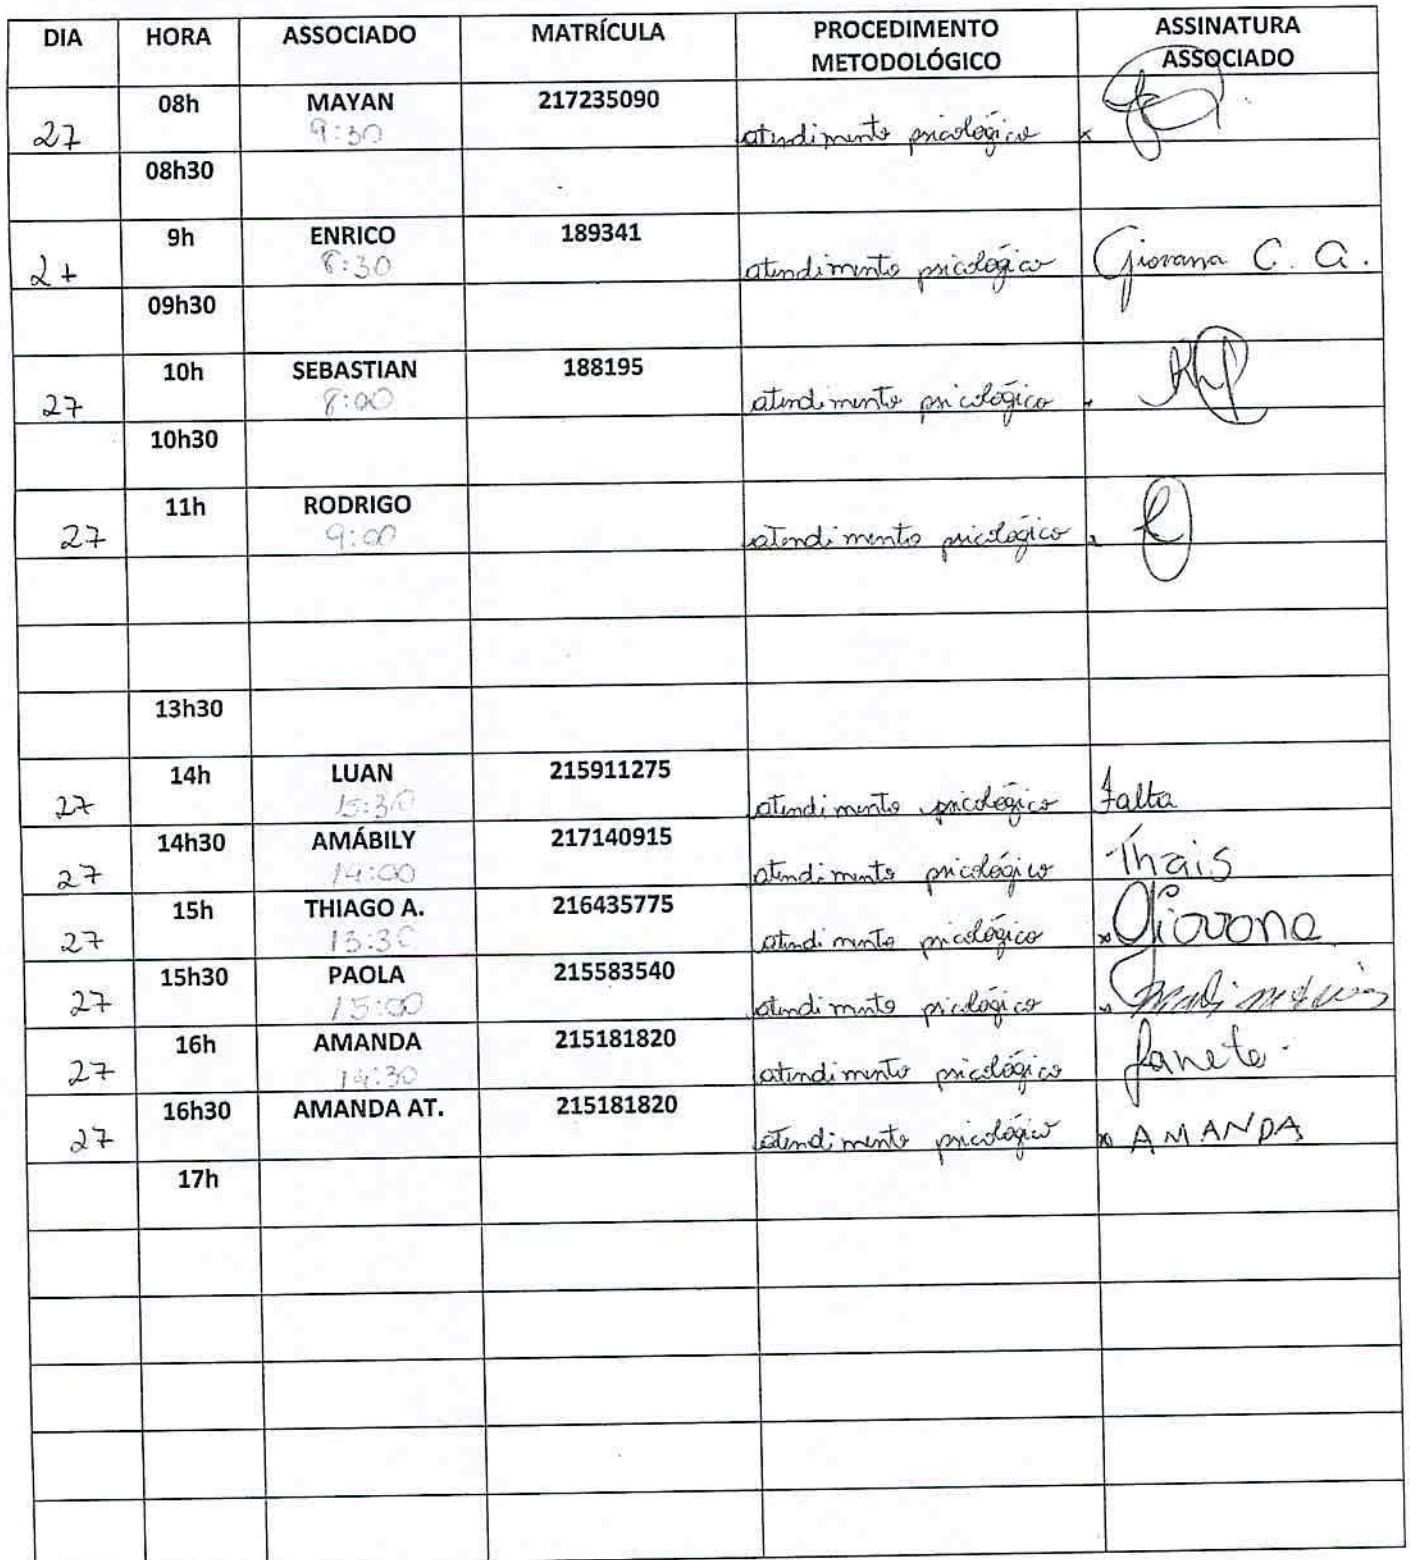 DIA HORA ASSOCIADO MATRÍCULA PROCEDIMENTO METODOLÓGICO ASSINATURA ASSOCIADO
08h MAYAN 217235090
27 9:30 atendimento psicológico x
08h30
9h ENRICO 189341
27 8:30 atendimento psicológico Giovana C. A.
09h30
10h SEBASTIAN 188195
27 8:00 atendimento psicológico
10h30
11h RODRIGO
27 9:00 atendimento psicológico
13h30
14h LUAN 215911275
27 15:30 atendimento psicológico Falta
14h30 AMÁBILY 217140915
27 14:00 atendimento psicológico Thais
15h THIAGO A. 216435775
27 13:30 atendimento psicológico Giovana
15h30 PAOLA 215583540
27 15:00 atendimento psicológico
16h AMANDA 215181820
27 14:30 atendimento psicológico Janete
16h30 AMANDA AT. 215181820
27 atendimento psicológico AMANDA
17h